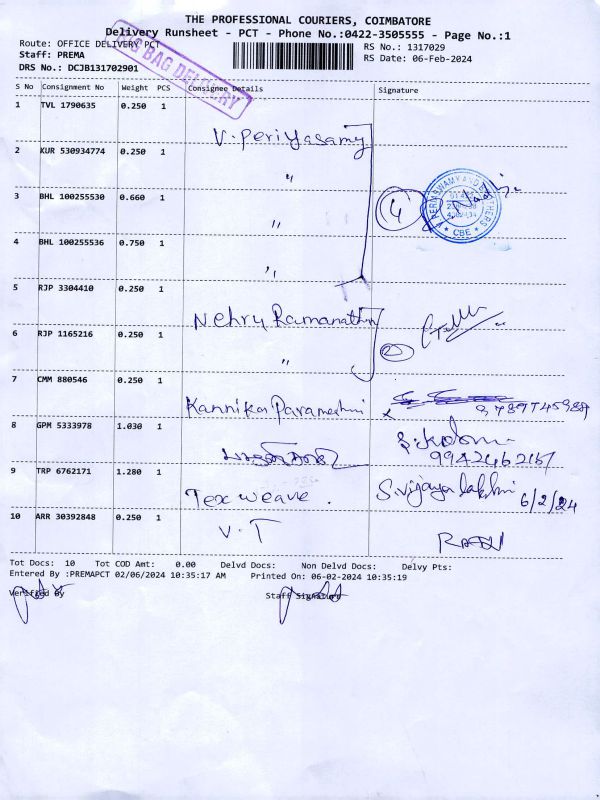 THE PROFESSIONAL COURIERS, COIMBATORE
Delivery Runsheet - PCT - Phone No.:0422-3505555 - Page No.:1
Route: OFFICE DELIVERY PCT
RS No.: 1317029
Staff: PREMA
RS Date: 06-Feb-2024
DRS No.: DCJB131702901
BAG DELIVERY
S No Consignment No Weight PCS Consignee Details Signature
1 TVL 1790635 0.250 1 V. Periyasamy
2 KUR 530934774 0.250 1 "
3 BHL 100255530 0.660 1 " 4
CBE
4 BHL 100255536 0.750 1 "
5 RJP 3304410 0.250 1 Nehru Ramanathan
6 RJP 1165216 0.250 1 " 2
7 CMM 880546 0.250 1 Kannika Parameshwari
8 GPM 5333978 1.030 1
9942462167
9 TRP 6762171 1.280 1 Tex weave. S. vijaya lakshmi 6/2/24
10 ARR 30392848 0.250 1 V. T
Tot Docs: 10 Tot COD Amt: 0.00 Delvd Docs: Non Delvd Docs: Delvy Pts:
Entered By :PREMAPCT 02/06/2024 10:35:17 AM Printed On: 06-02-2024 10:35:19
Verified By Staff Signature